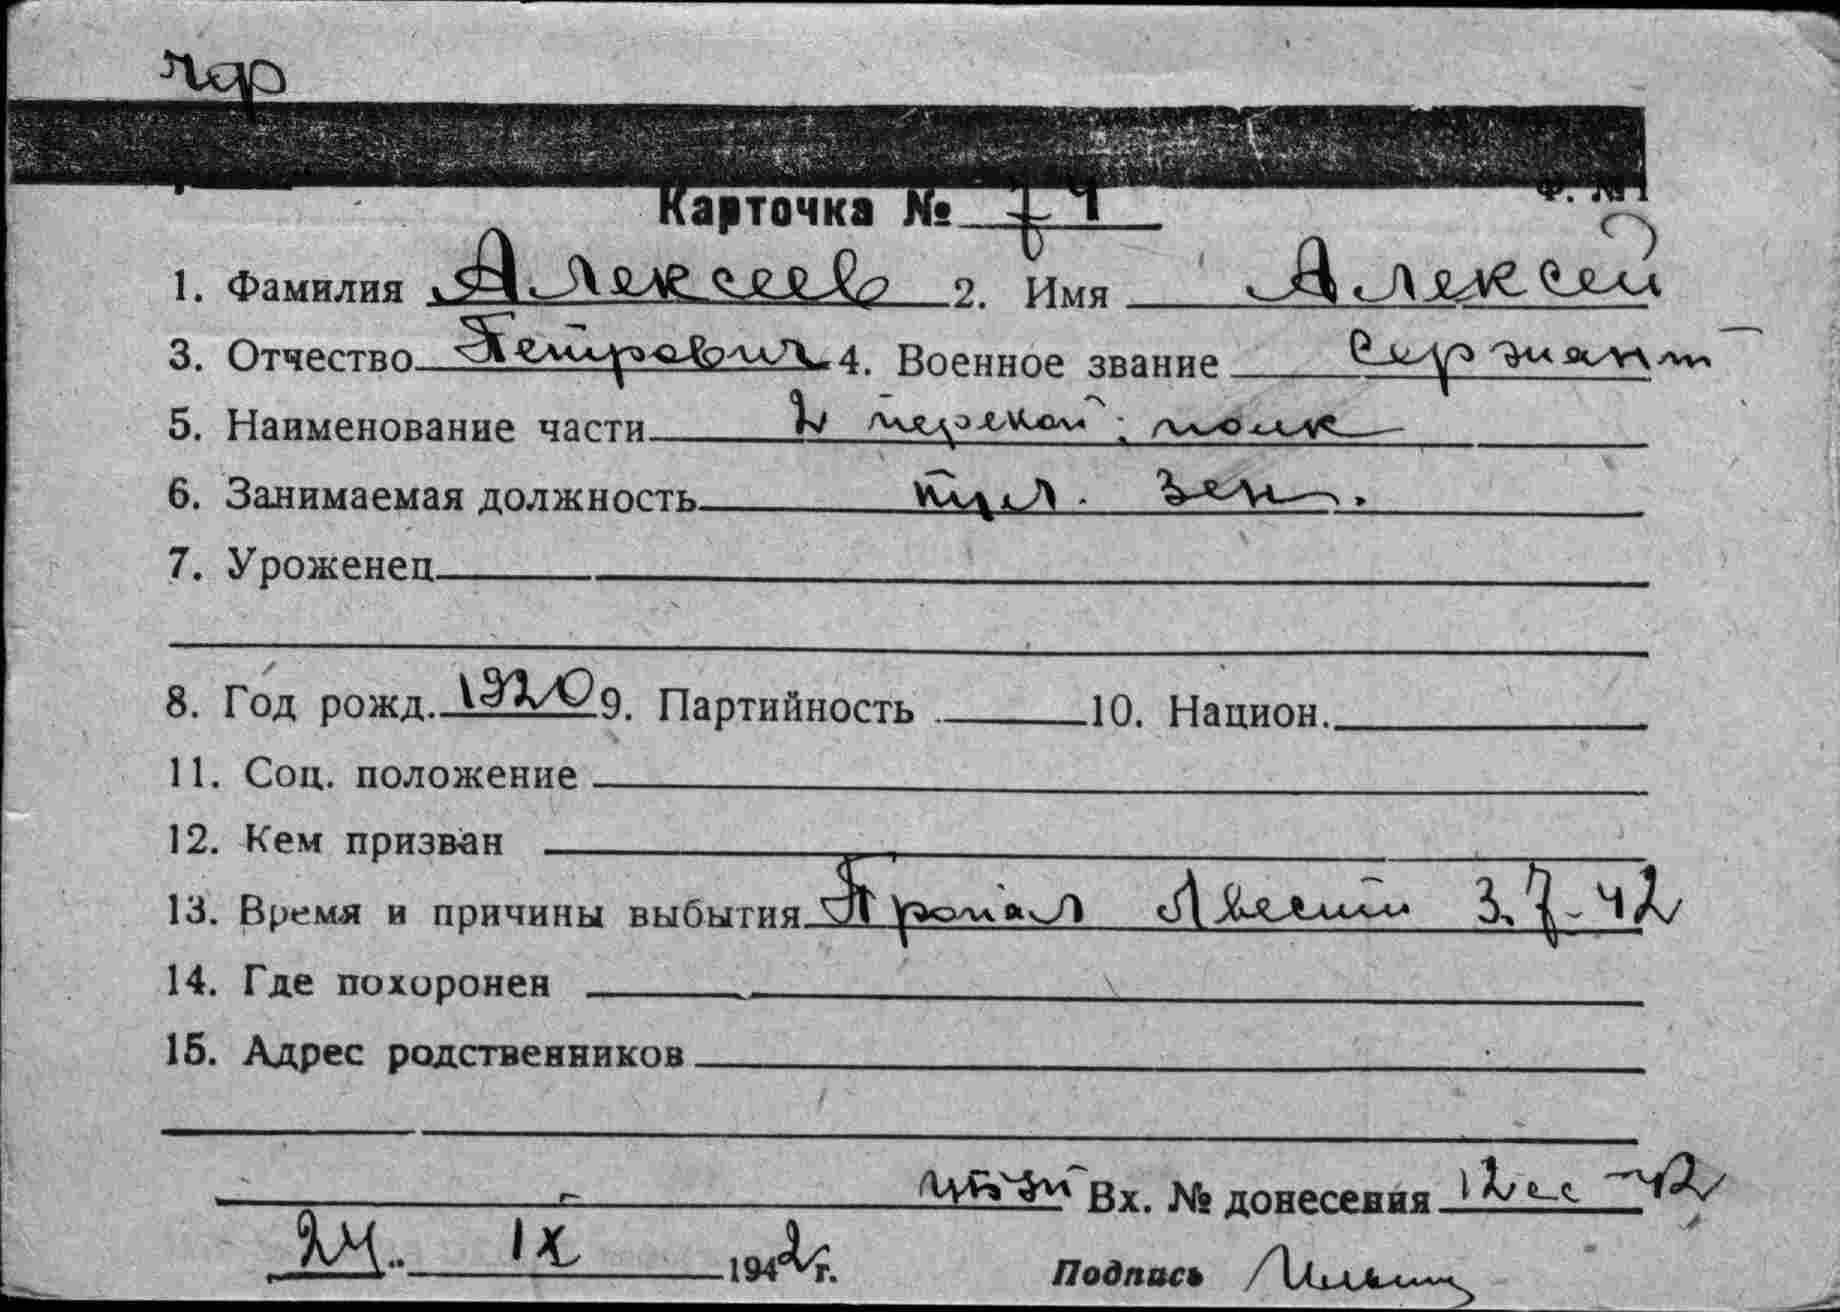 Карточка № 74
1. Фамилия Алексеев 2. Имя Алексей
3. Отчество Петрович 4. Военное звание сержант
5. Наименование части 2 перекоп. полк
6. Занимаемая должность пул. зен.
7. Уроженец
8. Год рожд. 1920 9. Партийность 10. Национ.
11. Соц. положение
12. Кем призван
13. Время и причины выбытия Пропал без вести 3.7-42
14. Где похоронен
15. Адрес родственников
Вх. № донесения 12сс-42
24. IX 1942 г. Подпись